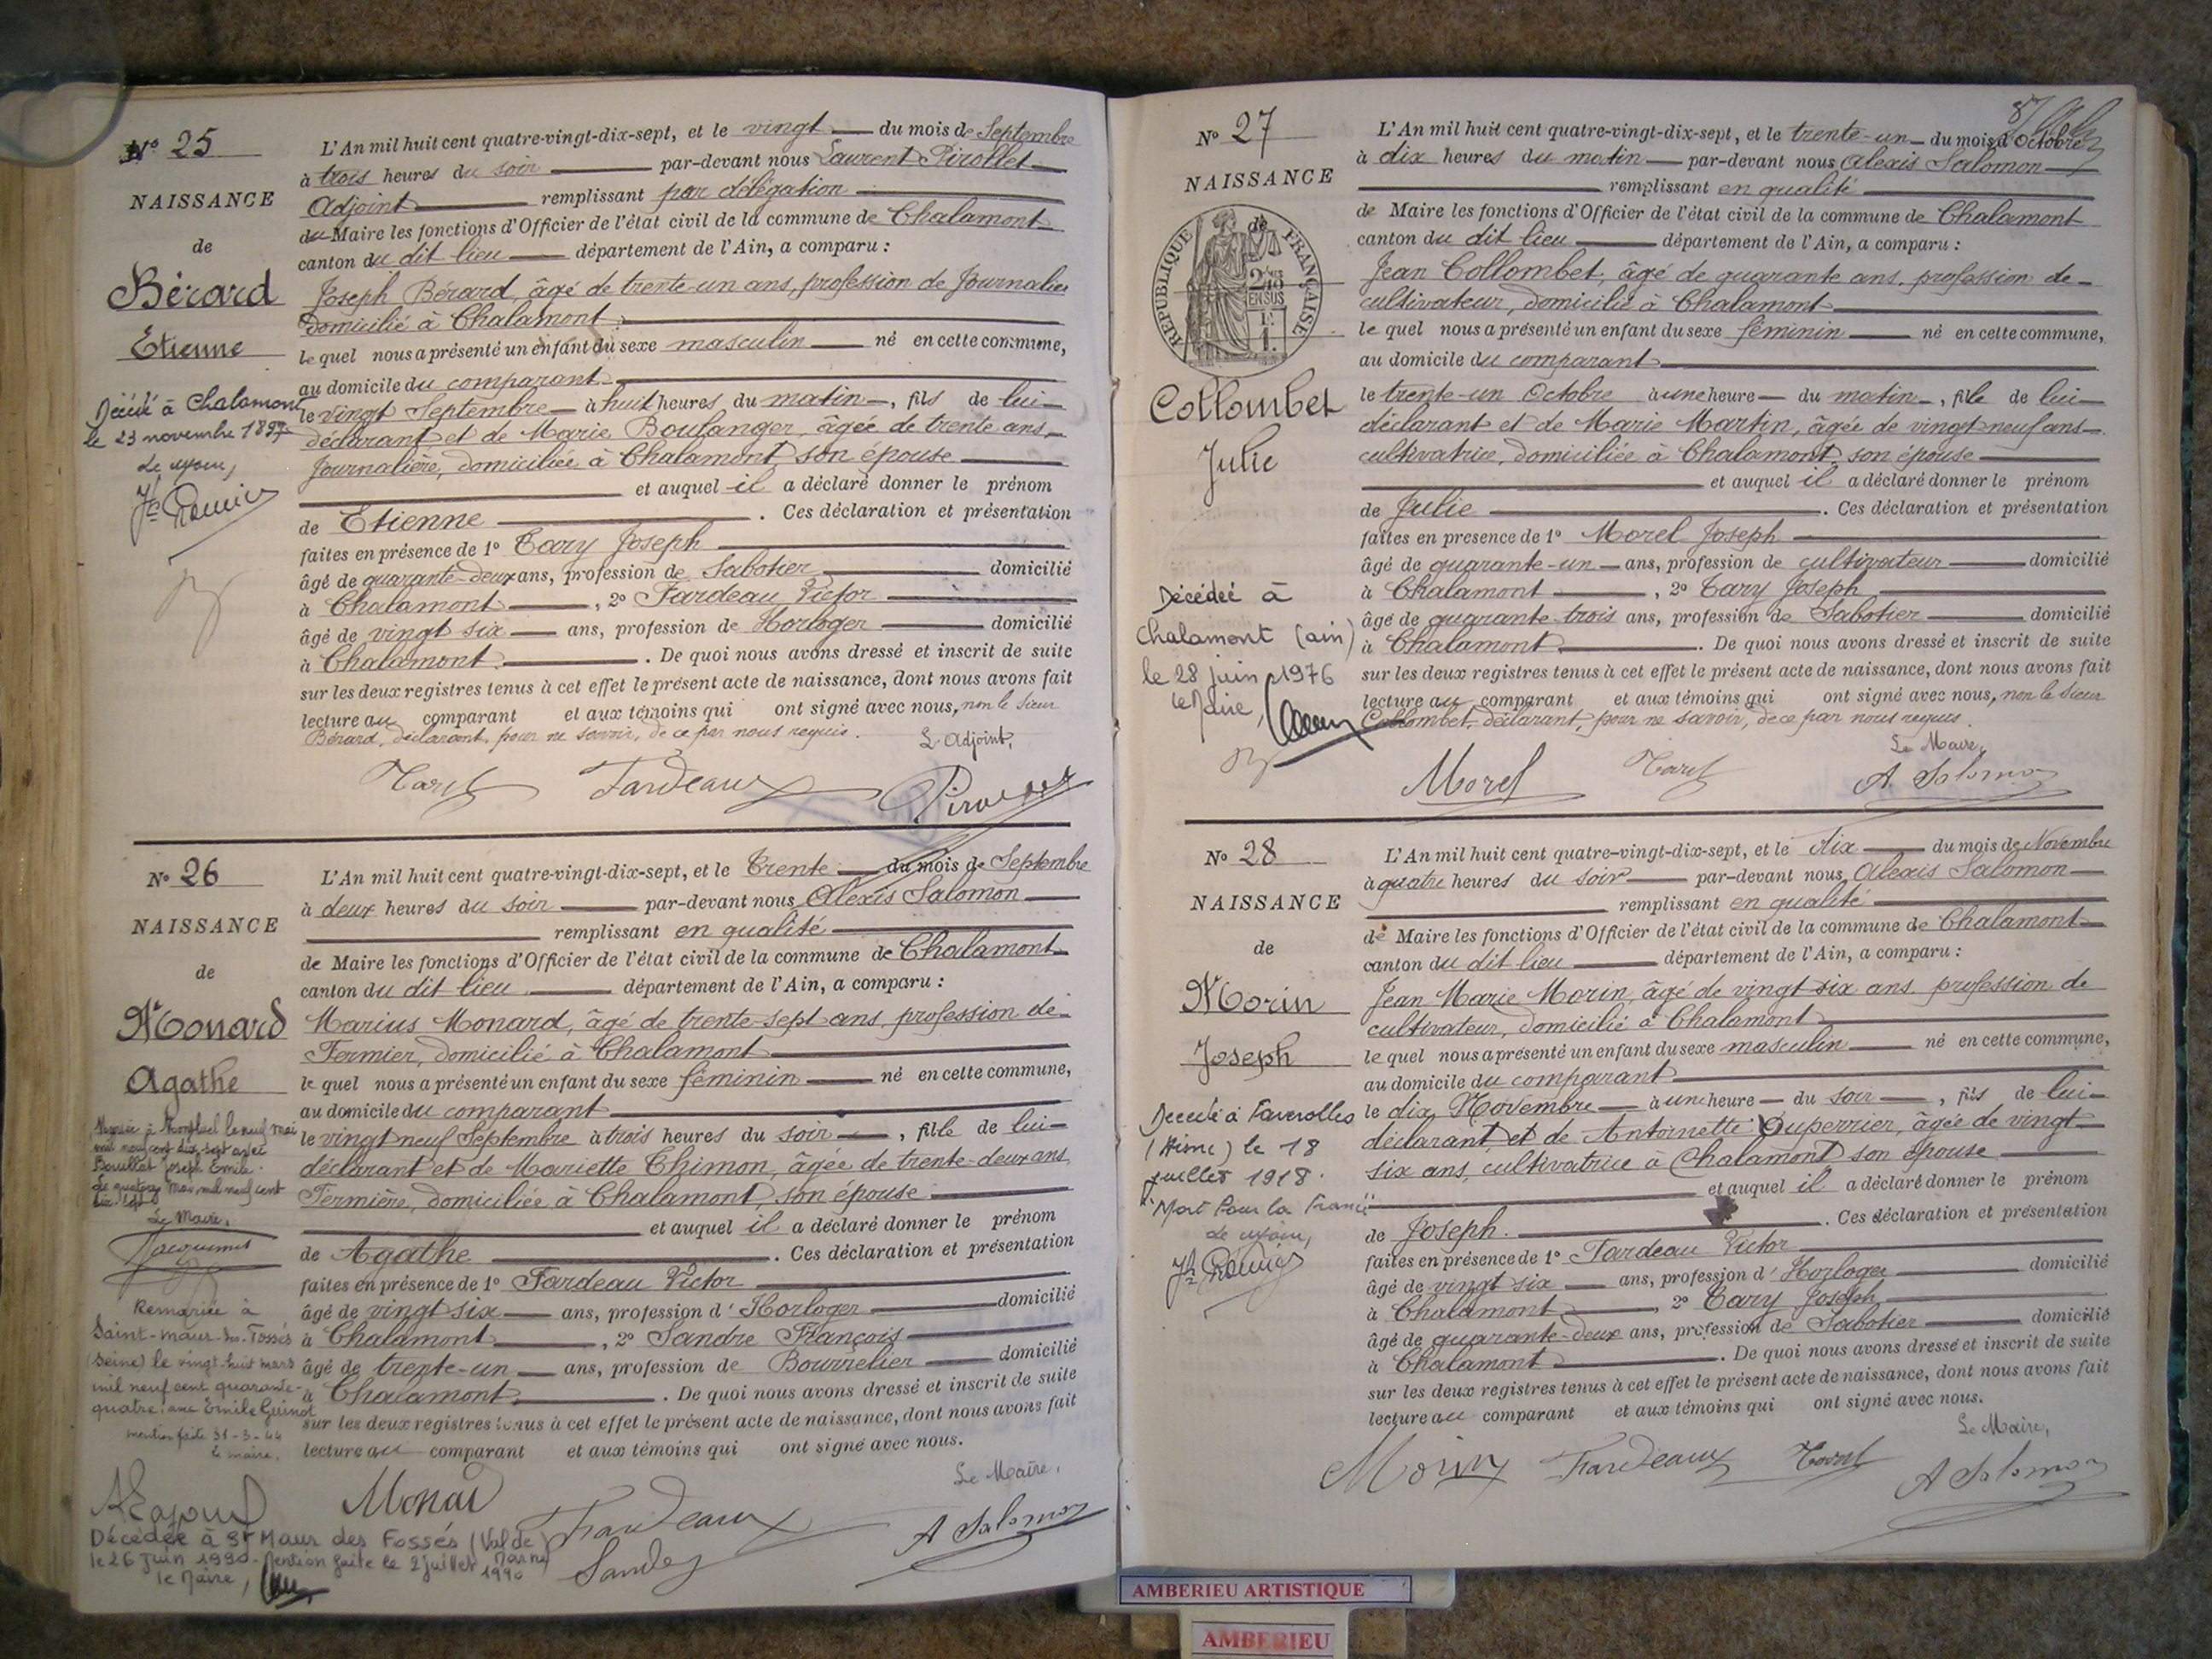 Nº 25
NAISSANCE
de
Bérard
Etienne
Décédé à Chalamont
le 23 novembre 1897
L'An mil huit cent quatre-vingt-dix-sept, et le vingt du mois de Septembre
à trois heures du soir par-devant nous Laurent Pirollet
Adjoint remplissant par délégation
du Maire les fonctions d'Officier de l'état civil de la commune de Chalamont
canton du dit lieu département de l'Ain, a comparu :
Joseph Bérard, âgé de trente-un ans, profession de Journalier
domicilié à Chalamont
le quel nous a présenté un enfant du sexe masculin né en cette commune,
au domicile du comparant
le vingt Septembre à huit heures du matin, fils de lui
déclarant et de Marie Boulanger, âgée de trente ans,
Journalière, domiciliée à Chalamont son épouse
et auquel il a déclaré donner le prénom
de Etienne. Ces déclaration et présentation
faites en présence de 1º Tary Joseph
âgé de quarante-deux ans, profession de Sabotier domicilié
à Chalamont, 2º Fardeau Victor
âgé de vingt six ans, profession de Horloger domicilié
à Chalamont. De quoi nous avons dressé et inscrit de suite
sur les deux registres tenus à cet effet le présent acte de naissance, dont nous avons fait
lecture au comparant et aux témoins qui ont signé avec nous, non le sieur
Bérard, déclarant, pour ne savoir, de ce par nous requis.
L'Adjoint,
Fardeaux
Nº 26
NAISSANCE
de
Monard
Agathe
Mariée à Montluel le neuf mai
mil neuf cent dix-sept avec
Bouillat Joseph Emile.
Le quatorze Mai mil neuf cent
dix-sept
Le Maire,
Remariée à
Saint-Maur-des-Fossés
(Seine) le vingt-huit mars
mil neuf cent quarante-
quatre avec Emile Guinot
mention faite 31-3-44
le maire,
L'An mil huit cent quatre-vingt-dix-sept, et le Trente du mois de Septembre
à deux heures du soir par-devant nous Alexis Salomon
remplissant en qualité
de Maire les fonctions d'Officier de l'état civil de la commune de Chalamont
canton du dit lieu département de l'Ain, a comparu :
Marius Monard, âgé de trente-sept ans profession de
Fermier, domicilié à Chalamont
le quel nous a présenté un enfant du sexe féminin né en cette commune,
au domicile du comparant
le vingt neuf Septembre à trois heures du soir, fille de lui
déclarant et de Mariette Thimon, âgée de trente-deux ans
Fermière, domiciliée à Chalamont, son épouse
et auquel il a déclaré donner le prénom
de Agathe. Ces déclaration et présentation
faites en présence de 1º Fardeau Victor
âgé de vingt six ans, profession d'Horloger domicilié
à Chalamont, 2º Sandre François
âgé de trente-un ans, profession de Bourrelier domicilié
à Chalamont. De quoi nous avons dressé et inscrit de suite
sur les deux registres tenus à cet effet le présent acte de naissance, dont nous avons fait
lecture au comparant et aux témoins qui ont signé avec nous.
Le Maire,
Fardeaux
A Salomon
Décédée à St Maur des Fossés (Val de Marne)
le 26 Juin 1990. Mention faite le 2 juillet 1990
le Maire,
Nº 27
NAISSANCE
de
RÉPUBLIQUE FRANÇAISE
Collombet
Julie
Décédée à
Chalamont (ain)
le 28 juin 1976
le Maire,
L'An mil huit cent quatre-vingt-dix-sept, et le trente-un du mois d'Octobre
à dix heures du matin par-devant nous Alexis Salomon
remplissant en qualité
de Maire les fonctions d'Officier de l'état civil de la commune de Chalamont
canton du dit lieu département de l'Ain, a comparu :
Jean Collombet, âgé de quarante ans, profession de
cultivateur, domicilié à Chalamont
le quel nous a présenté un enfant du sexe féminin né en cette commune,
au domicile du comparant
le trente-un Octobre à une heure du matin, fille de lui
déclarant et de Marie Martin, âgée de vingt neuf ans
cultivatrice, domiciliée à Chalamont son épouse
et auquel il a déclaré donner le prénom
de Julie. Ces déclaration et présentation
faites en présence de 1º Morel Joseph
âgé de quarante-un ans, profession de cultivateur domicilié
à Chalamont, 2º Tary Joseph
âgé de quarante trois ans, profession de Sabotier domicilié
à Chalamont. De quoi nous avons dressé et inscrit de suite
sur les deux registres tenus à cet effet le présent acte de naissance, dont nous avons fait
lecture au comparant et aux témoins qui ont signé avec nous, non le sieur
Collombet, déclarant, pour ne savoir, de ce par nous requis.
Le Maire,
Morel
A. Salomon
Nº 28
NAISSANCE
de
Morin
Joseph
Décédé à Faverolles
(Aisne) le 18
juillet 1918.
"Mort Pour la France"
L'An mil huit cent quatre-vingt-dix-sept, et le dix du mois de Novembre
à quatre heures du soir par-devant nous Alexis Salomon
remplissant en qualité
de Maire les fonctions d'Officier de l'état civil de la commune de Chalamont
canton du dit lieu département de l'Ain, a comparu :
Jean Marie Morin, âgé de vingt six ans profession de
cultivateur, domicilié à Chalamont
le quel nous a présenté un enfant du sexe masculin né en cette commune,
au domicile du comparant
le dix Novembre à une heure du soir, fils de lui
déclarant et de Antoinette Duperrier, âgée de vingt
six ans, cultivatrice à Chalamont son épouse
et auquel il a déclaré donner le prénom
de Joseph. Ces déclaration et présentation
faites en présence de 1º Fardeau Victor
âgé de vingt six ans, profession d'Horloger domicilié
à Chalamont, 2º Tary Joseph
âgé de quarante-deux ans, profession de Sabotier domicilié
à Chalamont. De quoi nous avons dressé et inscrit de suite
sur les deux registres tenus à cet effet le présent acte de naissance, dont nous avons fait
lecture au comparant et aux témoins qui ont signé avec nous.
Le Maire,
Morin Fardeaux
A Salomon
AMBERIEU ARTISTIQUE
AMBERIEU